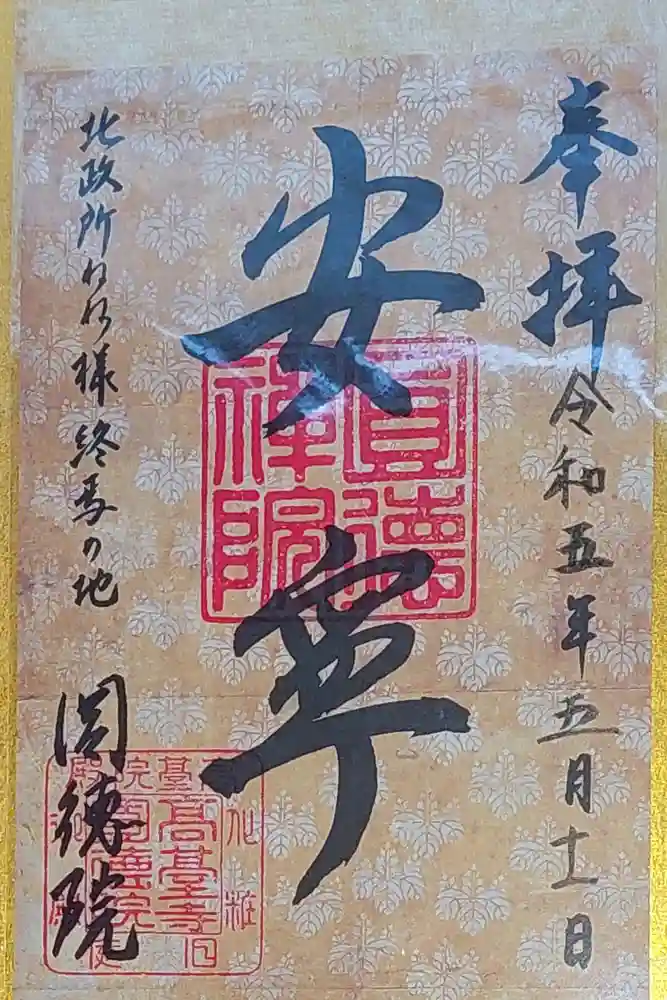 奉拝 令和五年五月十一日
安寧
北政所ねね様終焉の地
圓德院
圓徳禅院
高基寺